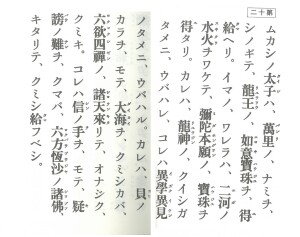 第二十
ムカシノ太子ハ、萬里ノナミヲ、
シノギテ、龍王ノ如意寶珠ヲ、得
給ヘリ。イマノ、ワレラハ、二河ノ
水火ヲワケテ、彌陀本願ノ寶珠ヲ
得タリ。カレハ、龍神ノ、クイシガ
タメニ、ウバハレ、コレハ異學異見
ノタメニ、ウバハル。カレハ、貝ノ
カラヲ、モテ、大海ヲ、クミシカバ、
六欲四禪ノ、諸天來リ、オナシク、
クミキ。コレハ信ノ手ヲ、モテ、疑
謗ノ難ヲ、クマバ、六方恆沙ノ諸佛
キタリテ、クミシ給フベシ。